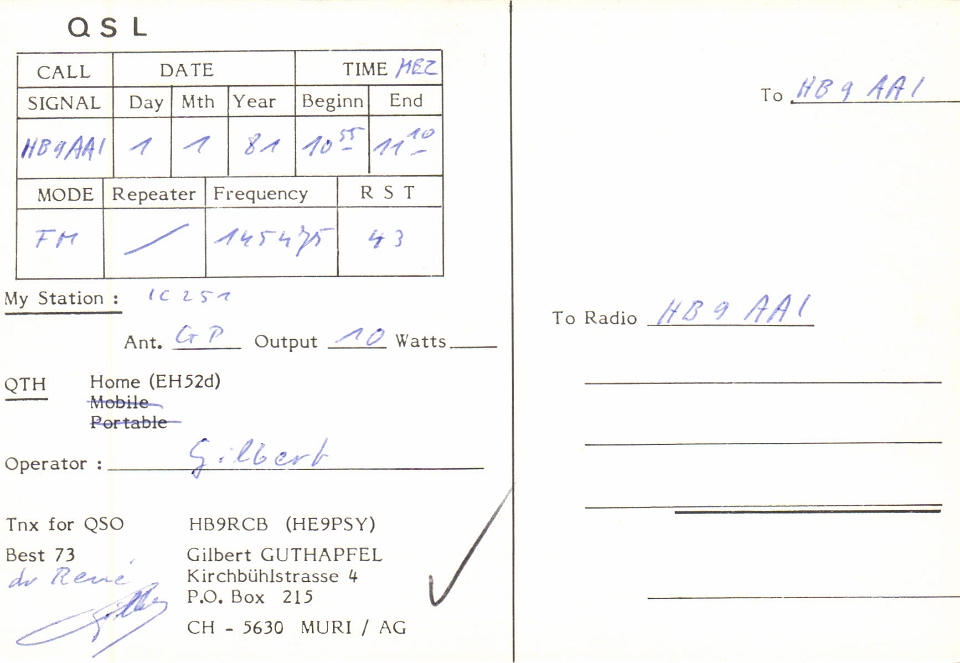 QSL
CALL DATE TIME MEZ
SIGNAL Day Mth Year Beginn End
HB9AAI 1 1 81 10 55 11 10
MODE Repeater Frequency R S T
FM / 145475 43
My Station : IC 251
Ant. GP Output 10 Watts
QTH Home (EH52d)
Mobile
Portable
Operator : Gilbert
Tnx for QSO HB9RCB (HE9PSY)
Best 73 Gilbert GUTHAPFEL
dr René Kirchbühlstrasse 4
P.O. Box 215
CH - 5630 MURI / AG
To HB9AAI
To Radio HB9AAI